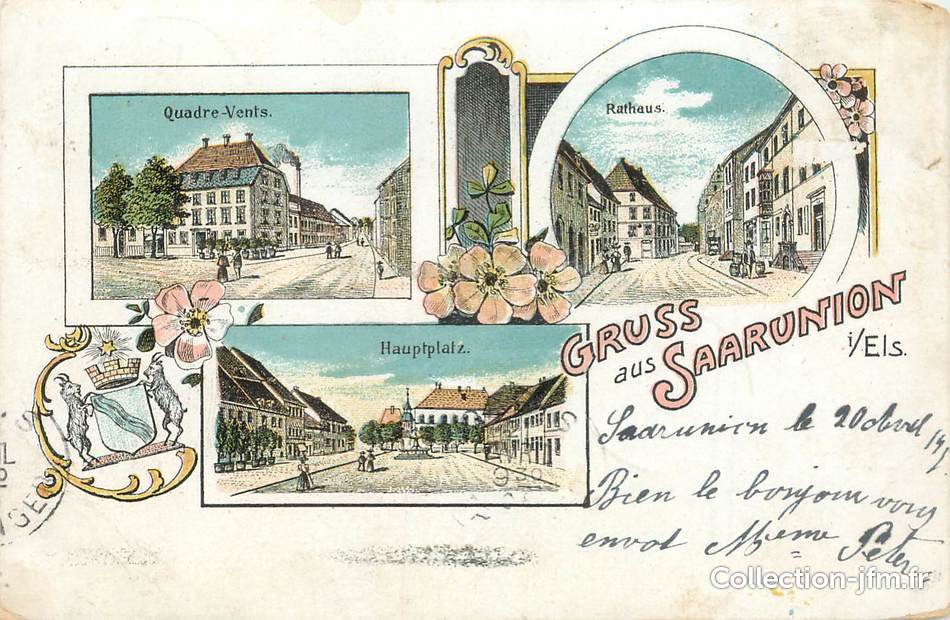 Quadre-Vents.
Rathaus.
Hauptplatz.
GRUSS
aus SAARUNION
i/Els.
Saarunion le 20
Bien le bonjour vous
envot Meme Peter
Collection-jfm.fr